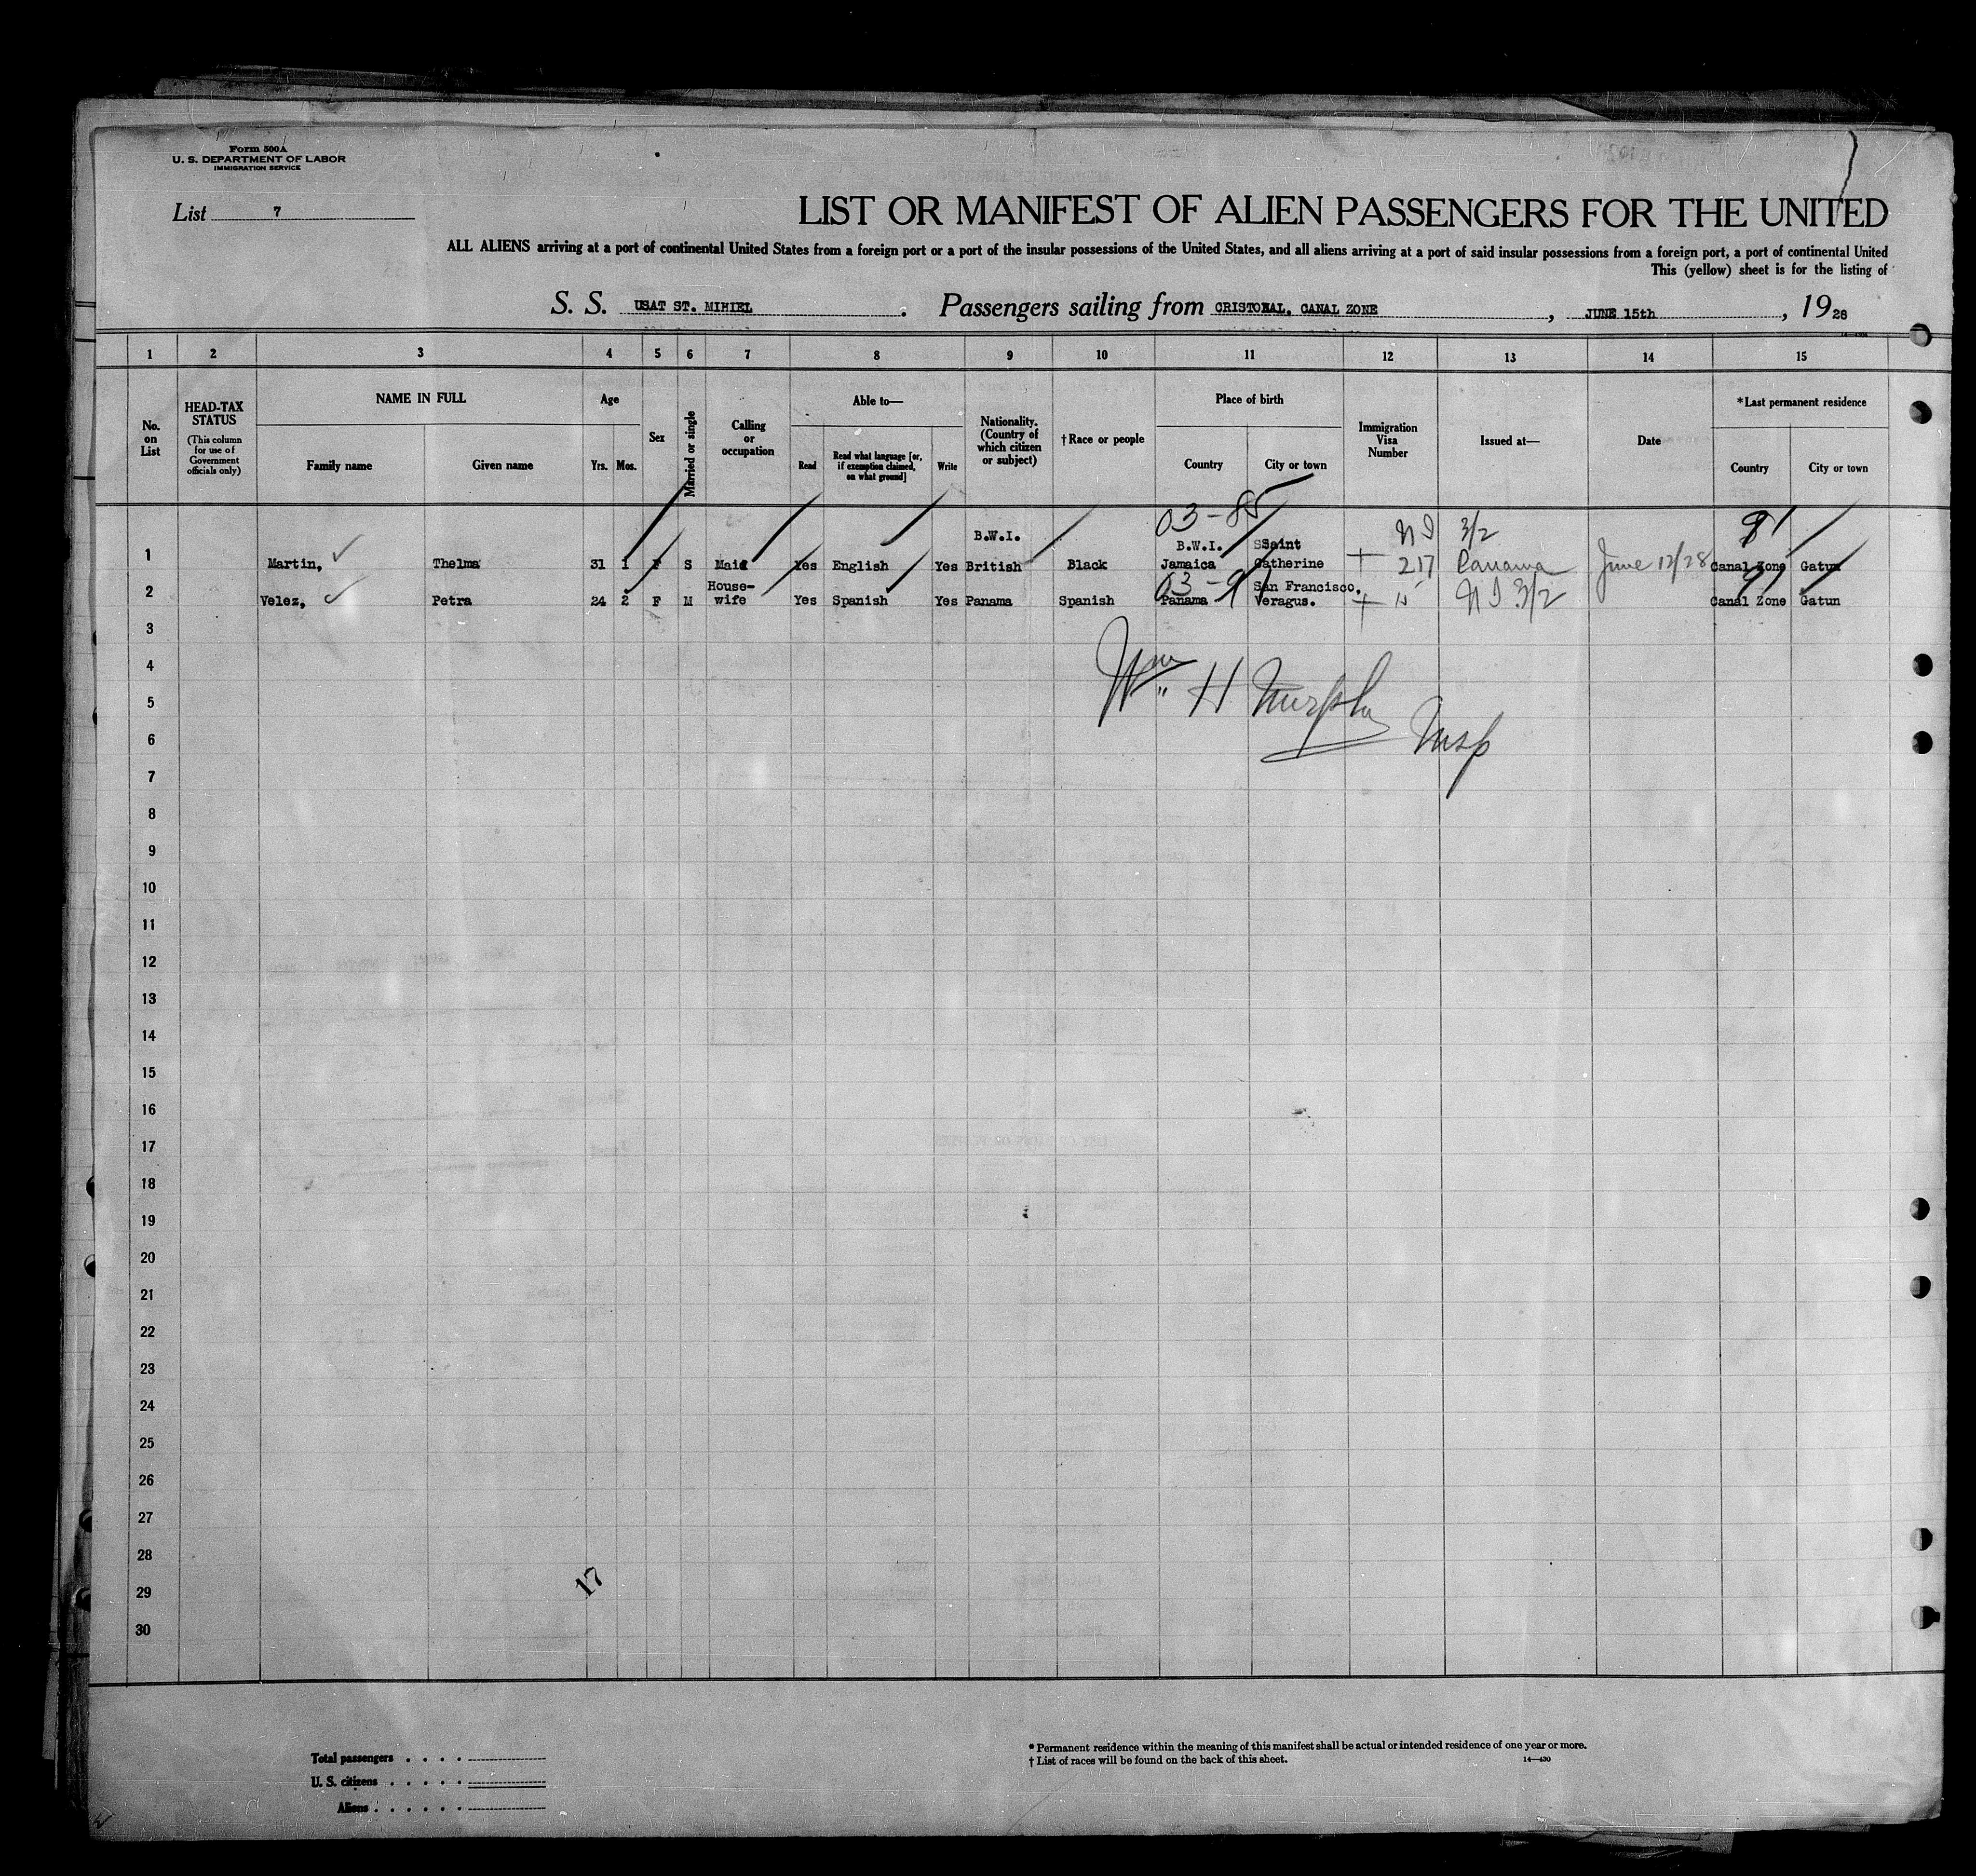 Form 500A
U. S. DEPARTMENT OF LABOR
IMMIGRATION SERVICE
List 7
LIST OR MANIFEST OF ALIEN PASSENGERS FOR THE UNITED
ALL ALIENS arriving at a port of continental United States from a foreign port or a port of the insular possessions of the United States, and all aliens arriving at a port of said insular possessions from a foreign port, a port of continental United
This (yellow) sheet is for the listing of
S. S. USAT ST. MIHIEL . Passengers sailing from CRISTOBAL, CANAL ZONE , JUNE 15th , 1928
1 2 3 4 5 6 7 8 9 10 11 12 13 14 15
No. on List
HEAD-TAX STATUS (This column for use of Government officials only)
NAME IN FULL
Family name Given name
Age
Yrs. Mos.
Sex
Married or single
Calling or occupation
Able to—
Read Read what language [or, if exemption claimed, on what ground] Write
Nationality. (Country of which citizen or subject)
†Race or people
Place of birth
Country City or town
Immigration Visa Number
Issued at—
Date
*Last permanent residence
Country City or town
03-85
B.W.I. B.W.I. SSaint 3/2
1 Martin, Thelma 31 1 F S Maid Yes English Yes British Black Jamaica Catherine 217 Panama June 12/28 Canal Zone Gatun
House- 03-91 San Francisco. 91
2 Velez, Petra 24 2 F M wife Yes Spanish Yes Panama Spanish Panama Veragus. " 3/2 Canal Zone Gatun
3
4
Wm H Murphy
5
6
Insp
7
8
9
10
11
12
13
14
15
16
17
18
19
20
21
22
23
24
25
26
27
28
29
17
30
Total passengers . . . .
U. S. citizens . . . . .
Aliens . . . . . .
* Permanent residence within the meaning of this manifest shall be actual or intended residence of one year or more.
† List of races will be found on the back of this sheet. 14—430